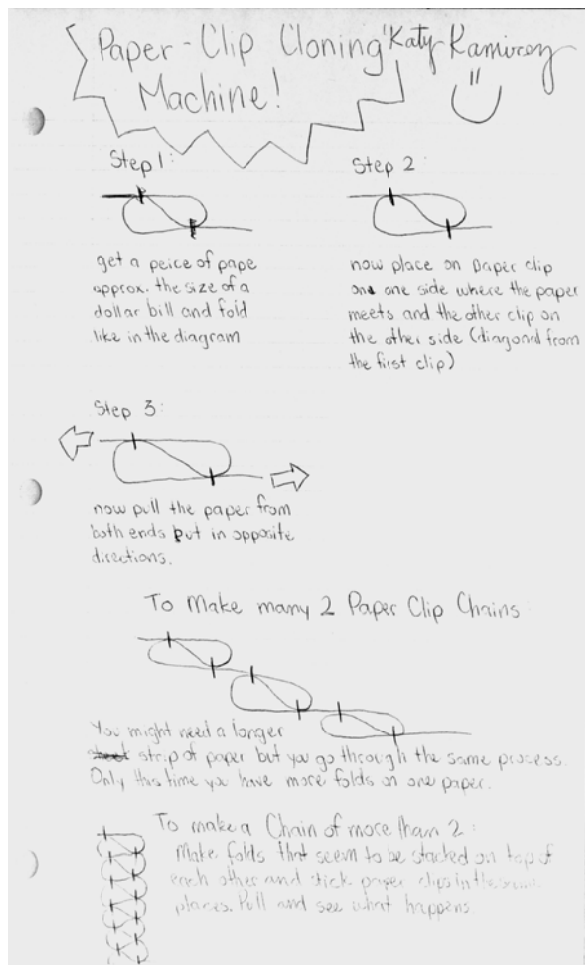 Paper-Clip Cloning
Machine!
Katy Ramirez
Step 1:
get a peice of pape
approx. the size of a
dollar bill and fold
like in the diagram
Step 2:
now place on paper clip
on one side where the paper
meets and the other clip on
the other side (diagonal from
the first clip)
Step 3:
now pull the paper from
both ends but in opposite
directions.
To Make many 2 Paper Clip Chains
You might need a longer
strip of paper but you go through the same process.
Only this time you have more folds on one paper.
To make a Chain of more than 2:
Make folds that seem to be stacked on top of
each other and stick paper clips in the same
places. Pull and see what happens